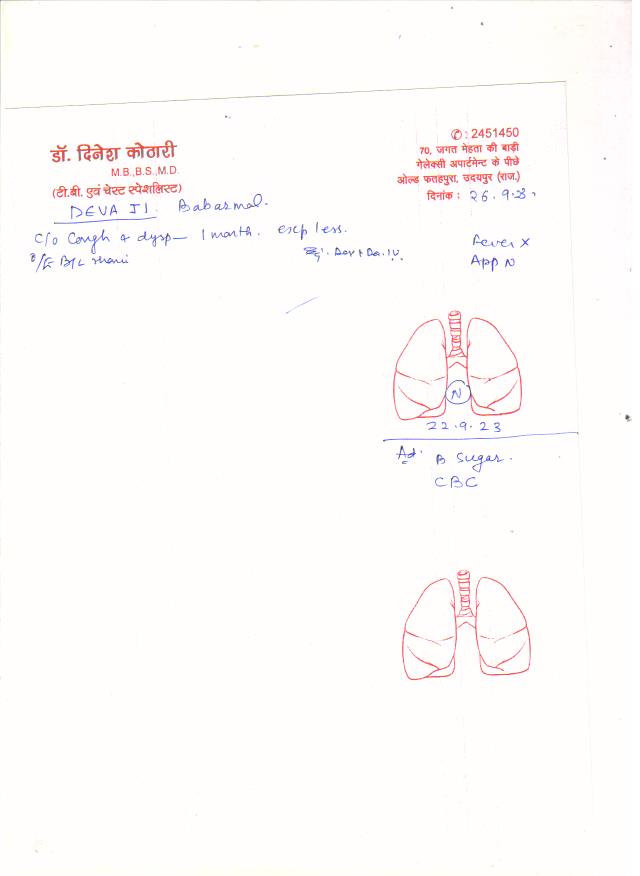 ✆ : 2451450
डॉ. दिनेश कोठारी
M.B.,B.S.,M.D.
(टी.बी. एवं चेस्ट स्पेशलिस्ट)
70, जगत मेहता की बाड़ी
गेलेक्सी अपार्टमेन्ट के पीछे
ओल्ड फतहपुरा, उदयपुर (राज.)
दिनांक : 26.9.23
DEVA JI. Babarmal.
C/o Cough & dysp— 1 month. exp less.
Fever X
O/E B/L
App N
N
22.9.23
Ad.
B Sugar.
CBC